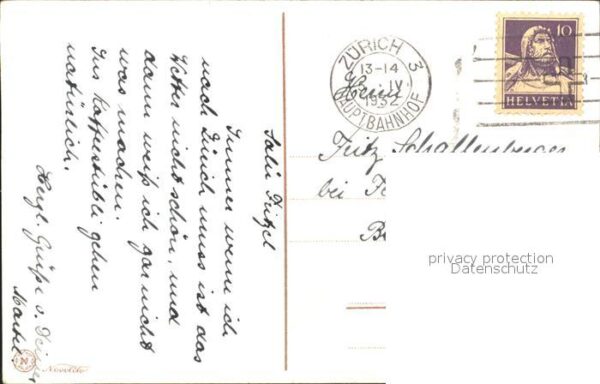 Salü Fritzel
Immer wenn ich
nach Zürich muss ist das
Wetter nicht schön, und
dann weiß ich gar nicht
was machen.
Ins Kaffeestübli gehen
natürlich.
Herzl. Grüße v. Deiner
ZÜRICH 3
13-14
1932
HAUPTBAHNHOF
10
HELVETIA
Herrn
Fritz Schallenberger
bei
privacy protection
Datenschutz
N
Novolith